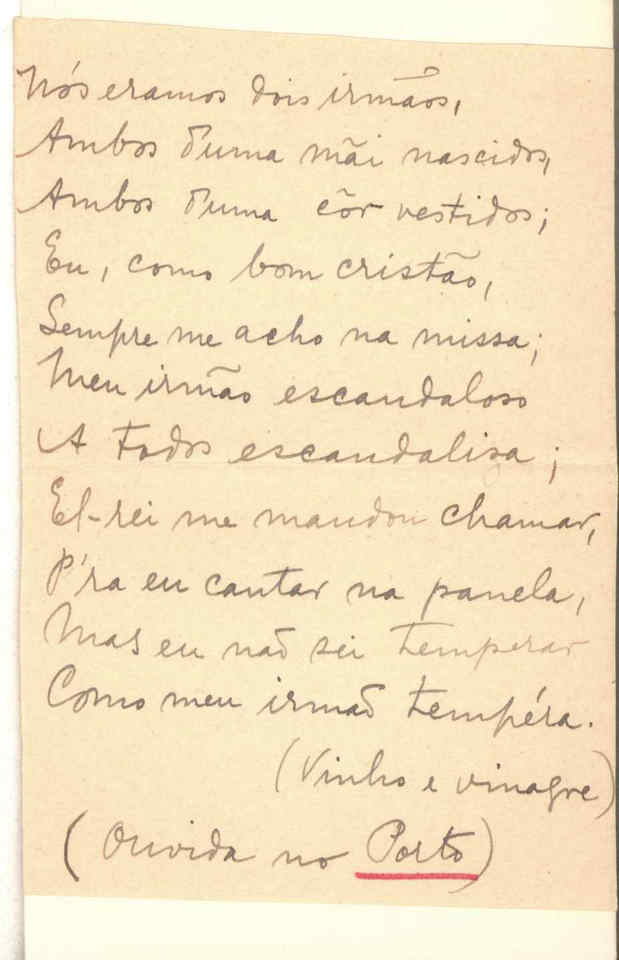 Nós eramos dois irmãos,
Ambos d'uma mãi nascidos,
Ambos d'uma côr vestidos;
Eu, como bom cristão,
Sempre me acho na missa;
Meu irmão escandaloso
A todos escandalisa;
El-rei me mandou chamar,
P'ra eu cantar na panela,
Mas eu não sei temperar
Como meu irmão tempéra.
(Vinho e vinagre)
(Ouvida no Porto)